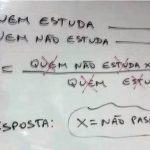 UEM ESTUDA
UEM NÃO ESTUDA
= QUEM NÃO ESTUDA X
QUEM ESTU
SPOSTA: X = NÃO PAS